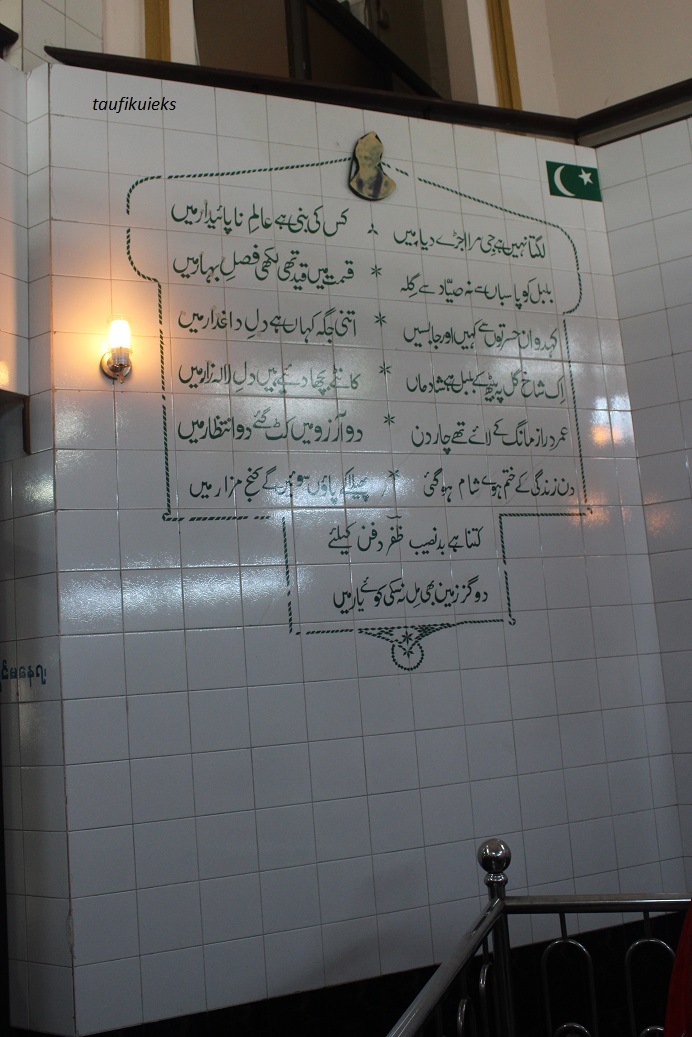 taufikuieks
لگتا نہیں ہے جی مرا اجڑے دیار میں کس کی بنی ہے عالمِ ناپائیدار میں
بلبل کو پاسباں سے نہ صیّاد سے گِلہ قسمت میں قید تھی لکھی فصلِ بہار میں
کہدو ان حسرتوں سے کہیں اور جا بسیں اتنی جگہ کہاں ہے دلِ داغدار میں
اِک شاخِ گل پہ بیٹھ کے بلبل ہے شادماں کانٹے بچھا دئیے ہیں دلِ لالہ زار میں
عمرِ دراز مانگ کے لائے تھے چار دن دو آرزو میں کٹ گئے دو انتظار میں
دن زندگی کے ختم ہوے شام ہو گئی پھیلا کے پاؤں سوئیں گے کنجِ مزار میں
کتنا ہے بدنصیب ظفر دفن کیلئے
دو گز زمین بھی مِل نہ سکی کوئے یار میں